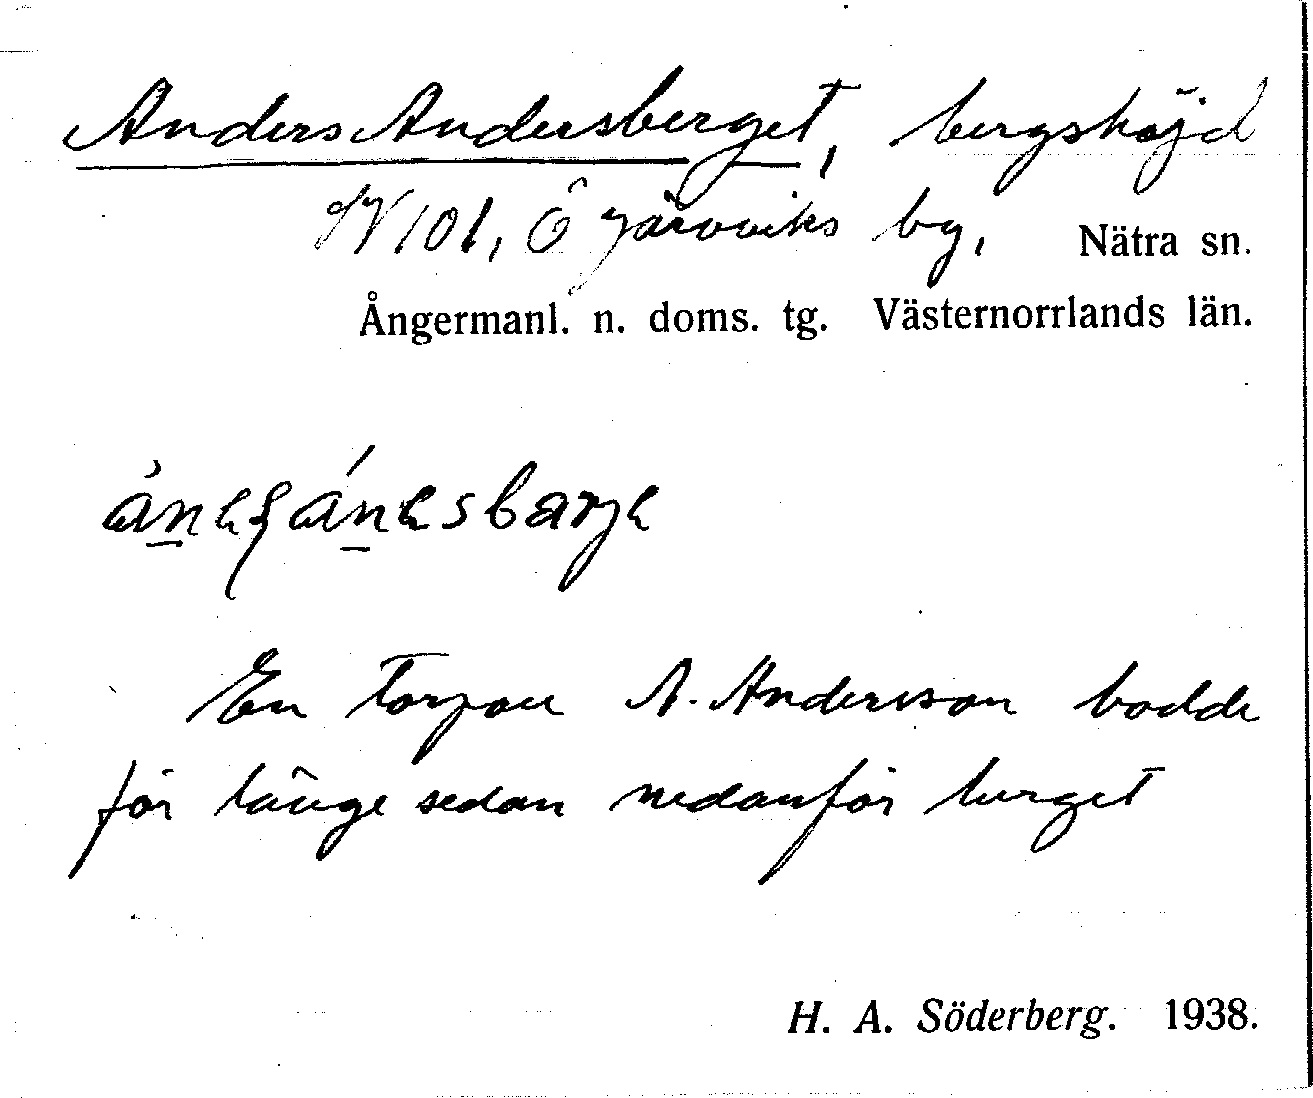 Anders Andersberget, bergshöjd
N 101, Ö Gärdviks by, Nätra sn.
Ångermanl. n. doms. tg. Västernorrlands län.
En torpare A. Andersson bodde
för länge sedan nedanför berget
H. A. Söderberg. 1938.